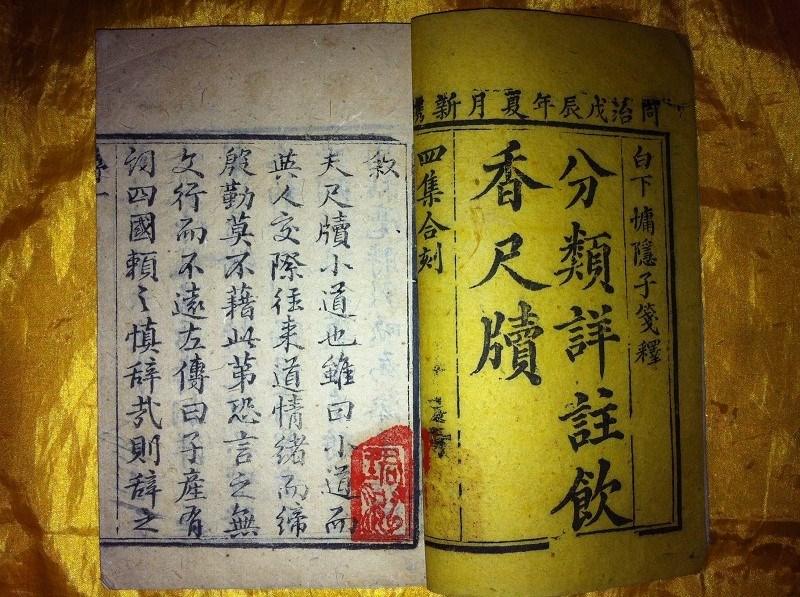 同治戊辰年夏月新鐫
白下慵隱子箋釋
分類詳註飲
香尺牘
四集合刻
敘
夫尺牘小道也雖曰小道而
與人交際往来道情緒而締
殷勤莫不藉此第恐言之無
文行而不遠左傳曰子產有
詞四國賴之慎辞哉則辞之